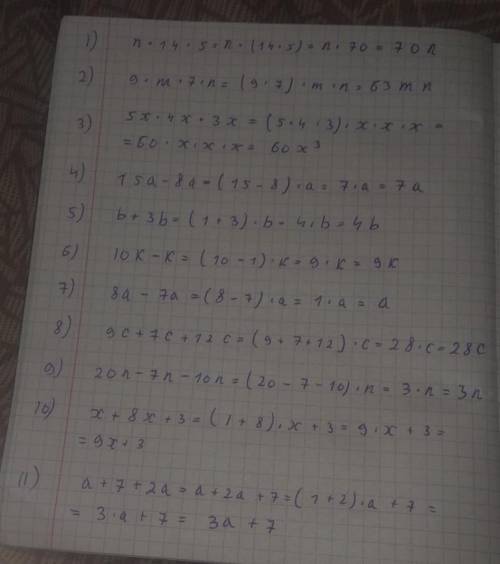 1) n · 14 · 5 = n · (14 · 5) = n · 70 = 70 n
2) 9 · m · 7 · n = (9 · 7) · m · n = 63 m n
3) 5x · 4x · 3x = (5 · 4 · 3) · x · x · x =
= 60 · x · x · x = 60 x³
4) 15a - 8a = (15 - 8) · a = 7 · a = 7a
5) b + 3b = (1 + 3) · b = 4 · b = 4b
6) 10k - k = (10 - 1) · k = 9 · k = 9k
7) 8a - 7a = (8 - 7) · a = 1 · a = a
8) 9c + 7c + 12c = (9 + 7 + 12) · c = 28 · c = 28c
9) 20n - 7n - 10n = (20 - 7 - 10) · n = 3 · n = 3n
10) x + 8x + 3 = (1 + 8) · x + 3 = 9 · x + 3 =
= 9x + 3
11) a + 7 + 2a = a + 2a + 7 = (1 + 2) · a + 7 =
= 3 · a + 7 = 3a + 7